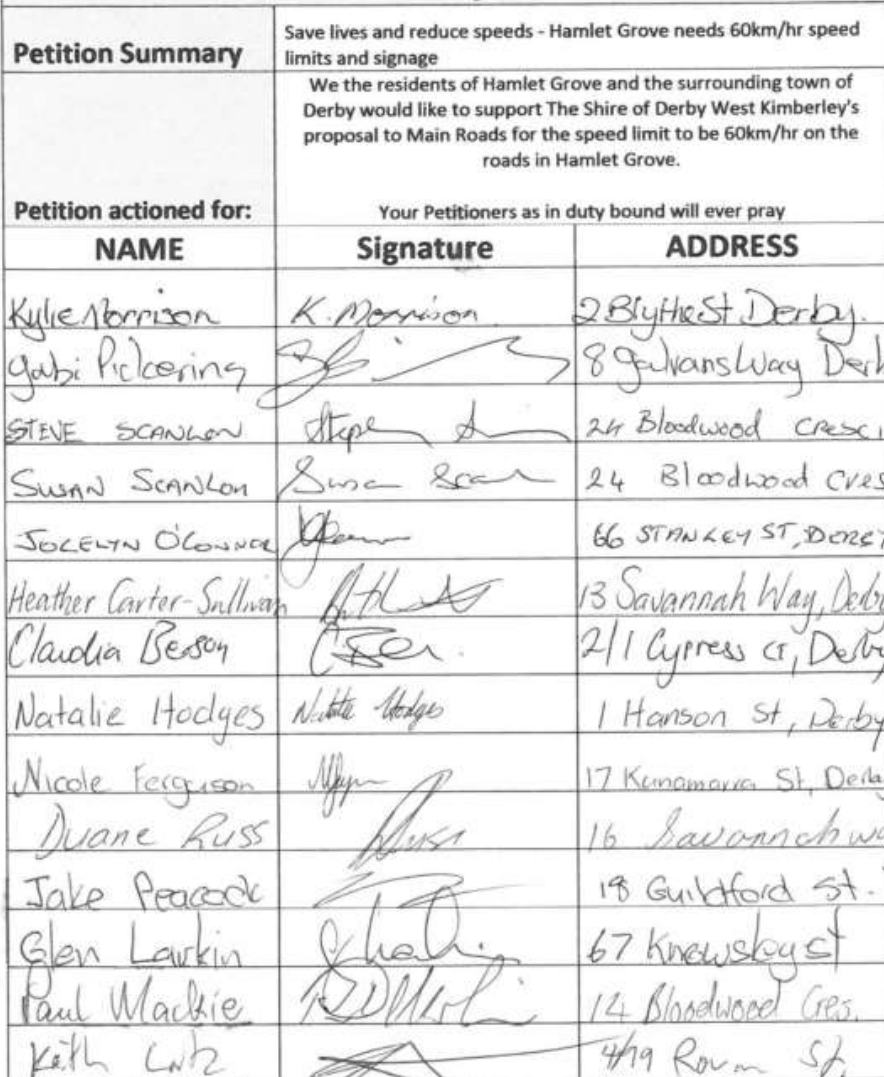 Petition Summary
Save lives and reduce speeds - Hamlet Grove needs 60km/hr speed
limits and signage
We the residents of Hamlet Grove and the surrounding town of
Derby would like to support The Shire of Derby West Kimberley's
proposal to Main Roads for the speed limit to be 60km/hr on the
roads in Hamlet Grove.
Petition actioned for:
Your Petitioners as in duty bound will ever pray
NAME Signature ADDRESS
Kylie Morrison K. Morrison 2 Blythe St Derby.
Gabi Pickering 8 Galvans Way Derb
STEVE SCANLON Steph 24 Bloodwood CRESC
SUSAN SCANLON Susan Scan 24 Bloodwood Cres
JOCELYN O'CONNOR 66 STANLEY ST, DERBY
Heather Carter-Sullivan 13 Savannah Way, Derby
Claudia Benson 2/1 Cypress CT, Derby
Natalie Hodges Natalie Hodges 1 Hanson St, Derby
Nicole Ferguson 17 Kunamarra St, Derby
Duane Russ Russ 16 Savannah wa
Jake Peacock 18 Guildford St.
Glen Larkin 67 Knowsley st
Paul Mackie 14 Bloodwood Cres.
Keith 4/19 St.